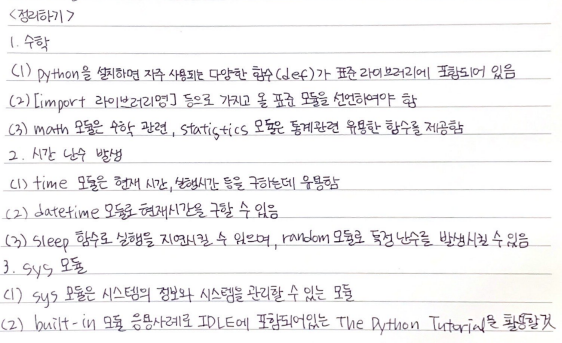 <정리하기>
1. 수학
(1) Python을 설치하면 자주 사용되는 다양한 함수(def)가 표준 라이브러리에 포함되어 있음
(2) [import 라이브러리명] 등으로 가지고 올 표준 모듈을 선언하여야 함
(3) math 모듈은 수학 관련, statistics 모듈은 통계관련 유용한 함수를 제공함
2. 시간 난수 발생
(1) time 모듈은 현재 시간, 실행시간 등을 구하는데 유용함
(2) datetime 모듈로 현재시간을 구할 수 있음
(3) sleep 함수로 실행을 지연시킬 수 있으며, random 모듈로 특정 난수를 발생시킬 수 있음
3. sys 모듈
(1) sys 모듈은 시스템의 정보와 시스템을 관리할 수 있는 모듈
(2) built-in 모듈 응용사례로 IDLE에 포함되어있는 The Python Tutorial을 활용할것